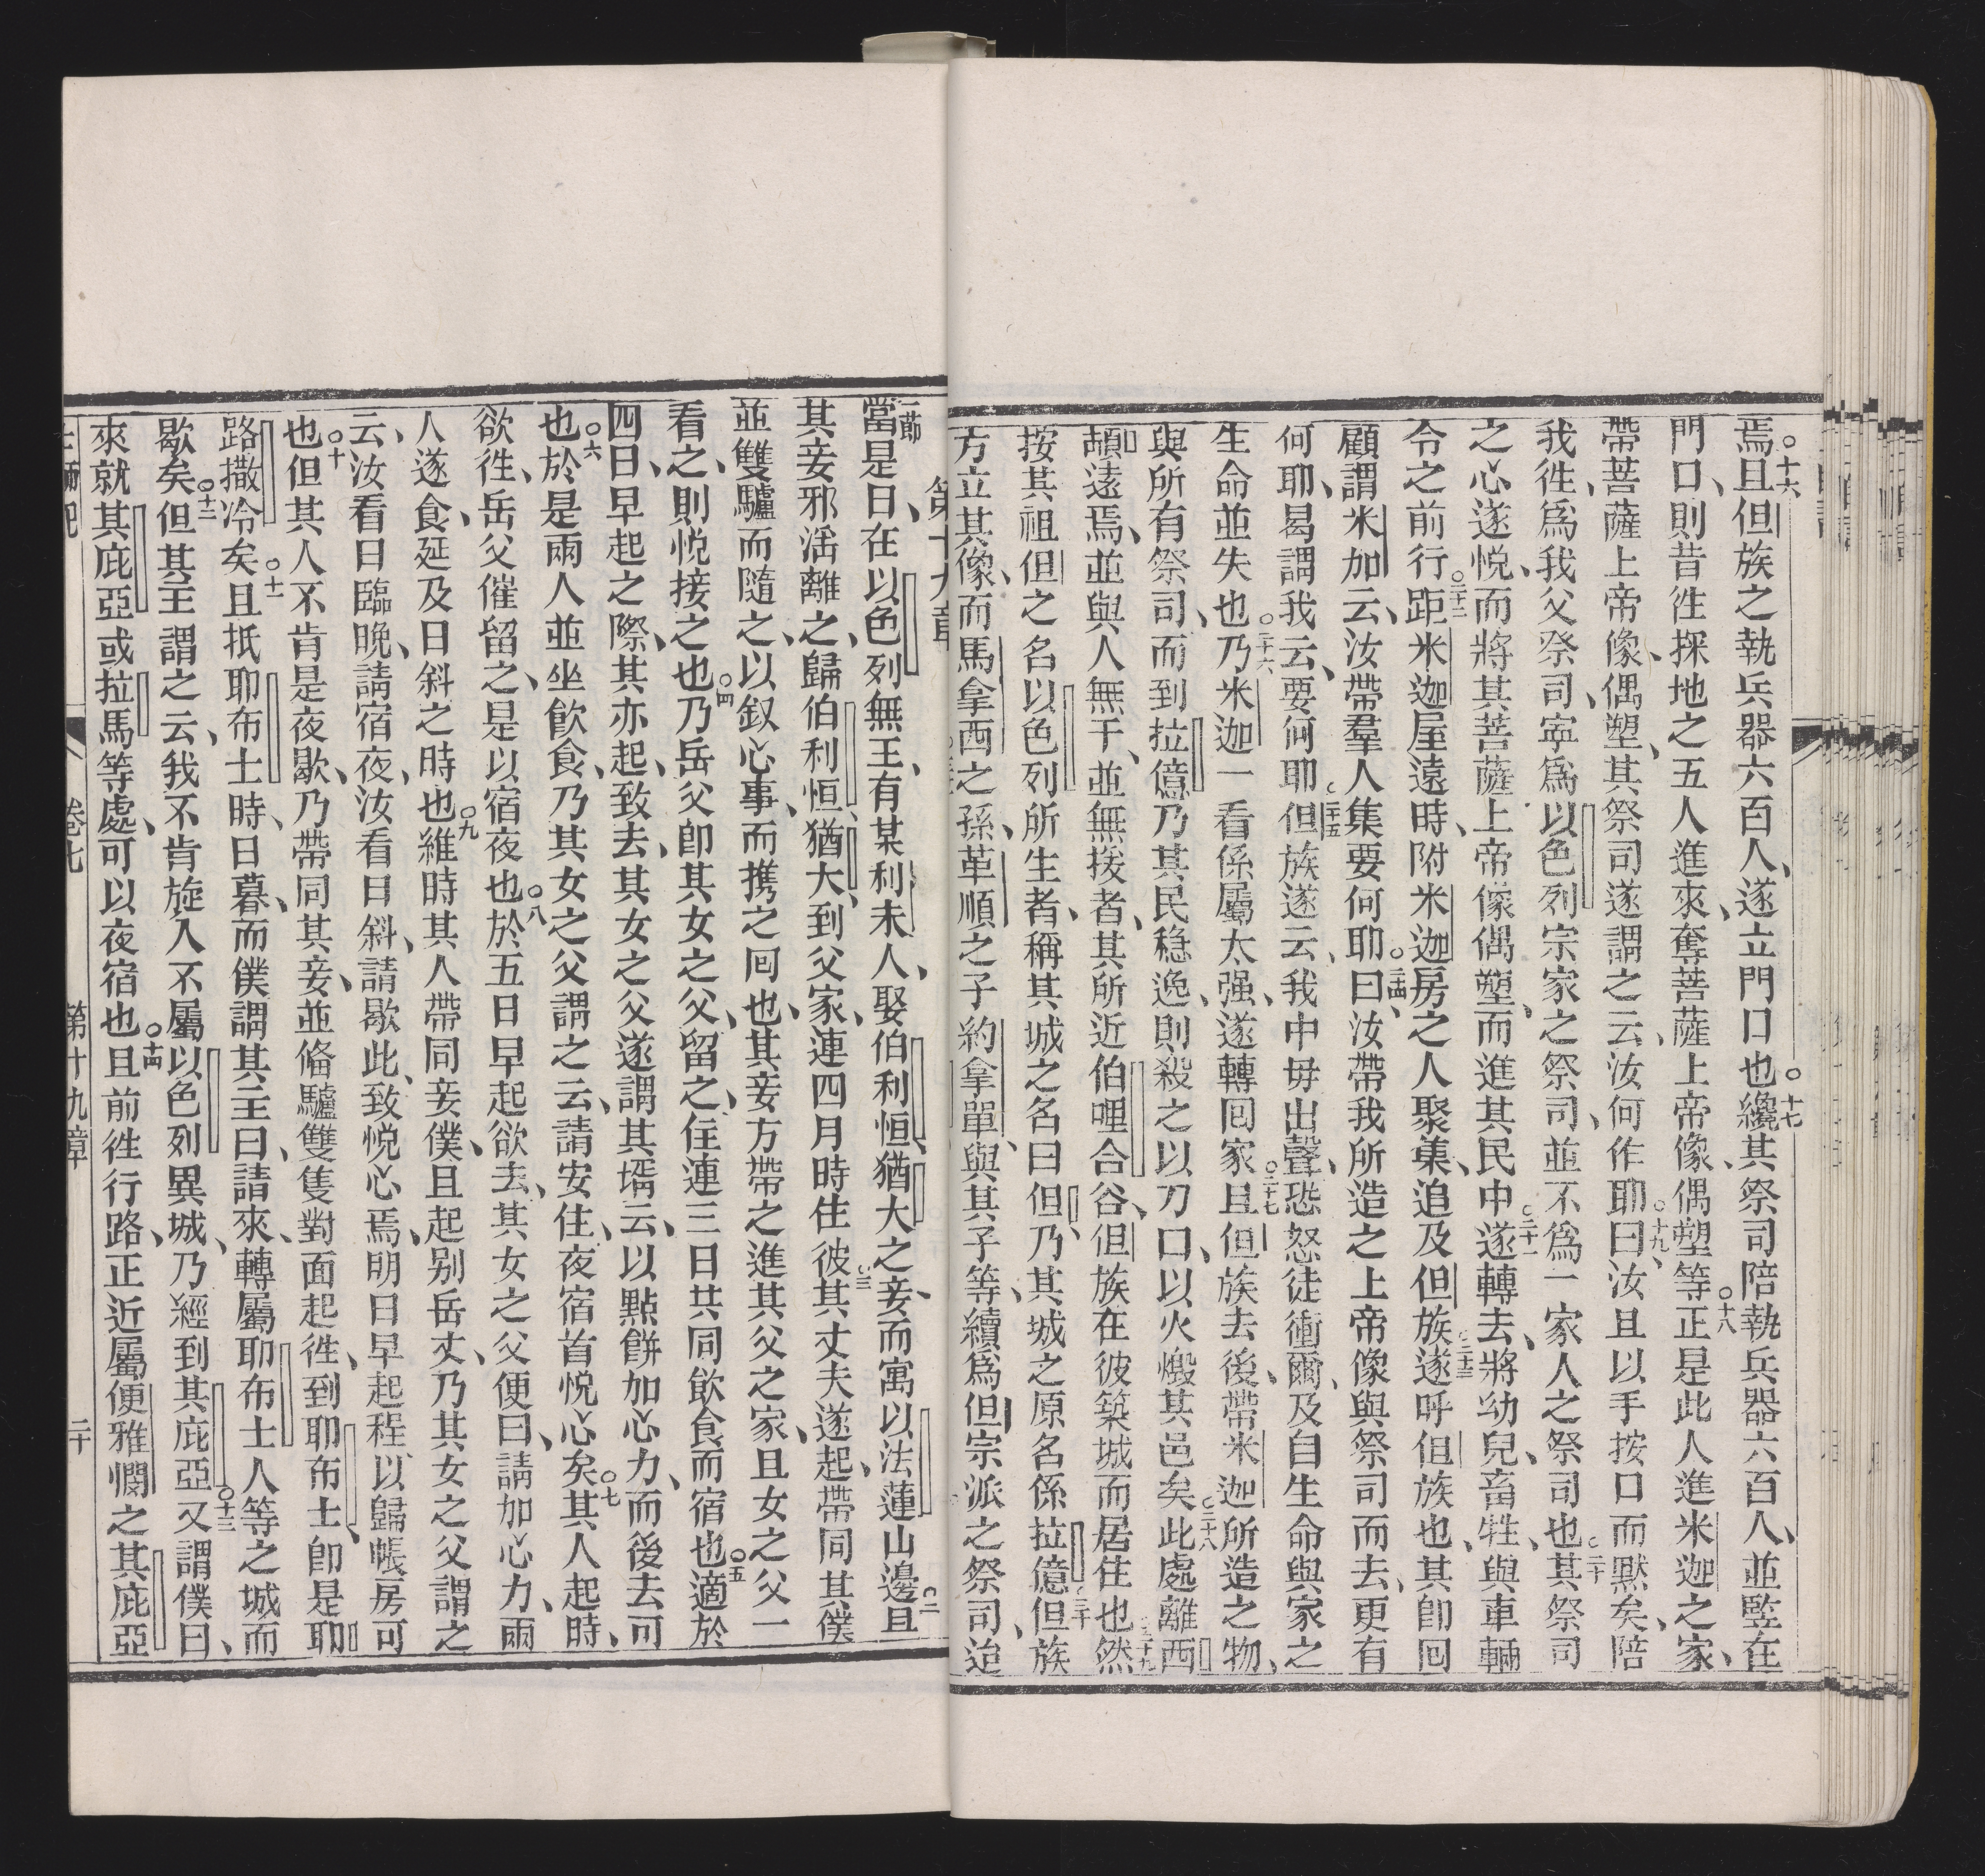 焉○十六且但族之執兵器六百人、遂立門口也○十七纔其祭司陪執兵器六百人、並竪在
門口、則昔徃探地之五人進來、奪菩薩上帝像、偶塑等○十八正是此人進米迦之家、
帶菩薩上帝像、偶塑、其祭司遂謂之云、汝何作耶○十九曰、汝且以手按口而默矣、陪
我徃、爲我父祭司、寧爲以色列宗家之祭司、並不爲一家人之祭司也○二十其祭司
之心遂悅、而將其菩薩上帝像偶塑、而進其民中○二十一遂轉去、將幼兒、畜牲、與車輛
令之前行○二十二距米迦屋遠時、附米迦房之人聚集、追及但族○二十三遂呼但族也、其卽回
顧謂米加云、汝帶羣人集要何耶○二十四曰、汝帶我所造之上帝像與祭司而去、更有
何耶、曷謂我云、要何耶○二十五但族遂云、我中毋出聲、恐怒徒衝爾、及自生命與家之
生命並失也○二十六乃米迦一看係屬太强、遂轉回家○二十七且但族去後、帶米迦所造之物、
與所有祭司、而到拉億乃其民穏逸、則殺之以刀口、以火燬其邑矣○二十八此處離西
頓遠焉、並與人無干、並無援者、其所近伯哩合谷、但族在彼築城而居住也○二十九然
按其祖但之名以色列所生者、稱其城之名曰但、乃其城之原名係拉億○三十但族
方立其像、而馬拿西之孫、革順之子約拿單、與其子等、續爲但宗派之祭司、迨
第十九章
一節當是日、在以色列無王、有某利未人、娶伯利恒、猶大之妾、而寓以法蓮山邊○二且
其妾邪淫離之、歸伯利恒、猶大、到父家、連四月時住彼○三其丈夫遂起、帶同其僕
並雙驢而隨之、以叙心事、而携之回也、其妾方帶之進其父之家、且女之父一
看之、則悅接之也○四乃岳父卽其女之父、留之、住連三日共同飲食而宿也○五適於
四日、早起之際、其亦起、致去、其女之父遂謂其壻云、以點餅加心力、而後去可
也○六於是兩人並坐飲食、乃其女之父謂之云、請安住、夜宿首悅心矣○七其人起時、
欲徃、岳父催留之、是以宿夜也○八於五日早起欲去、其女之父便曰、請加心力、兩
人遂食、延及日斜之時也○九維時其人帶同妾僕、且起别岳丈、乃其女之父謂之
云、汝看日臨晚、請宿夜、汝看日斜、請歇此、致悅心焉、明日早起程、以歸帳房可
也○十但其人不肯是夜歇、乃帶同其妾、並俻驢雙隻對面起徃、到耶布士、卽是耶
路撒冷矣○十一且抵耶布士時、日暮、而僕謂其主曰、請來、轉屬耶布士人等之城而
歇矣○十二但其主謂之云、我不肯旋入不屬以色列異城、乃經到其庇亞○十三又謂僕曰、
來就其庇亞或拉馬等處、可以夜宿也○十四且前徃行路、正近屬便雅憫之其庇亞
卷七 第十九章 二十